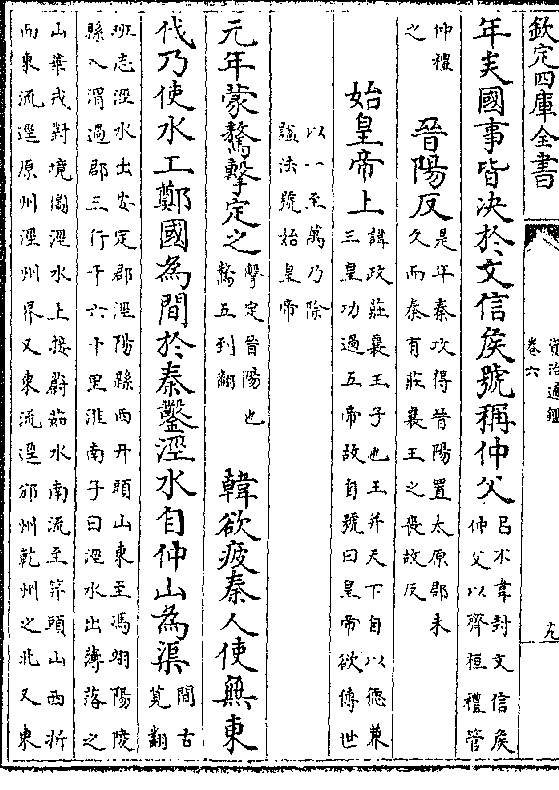 欽定四庫全書
資治通鑑
卷六
年矣國事皆決於文信侯號稱仲父
吕不韋封文信侯
仲父以齊桓禮管
仲禮
之
晉陽反
是年秦攻得晉陽置太原郡未
久而秦有莊襄王之喪故反
始皇帝上
諱政莊襄王子也王并天下自以德兼
三皇功過五帝故自號曰皇帝欲傳世
以一至萬乃除
諡法號始皇帝
元年蒙驁擊定之
擊定晉陽也
驁五到翻
韓欲疲秦人使無東
伐乃使水工鄭國為間於秦鑿涇水自仲山為渠
間古
莧翻
班志涇水出安定郡涇陽縣西幵頭山東至馮翊陽陵
縣入渭過郡三行千六十里淮南子曰涇水出薄落之
山華戎對境圖涇水上接蔚茹水南流至筓頭山西折
而東流逕原州涇州界又東流逕邠州乾州之北又東